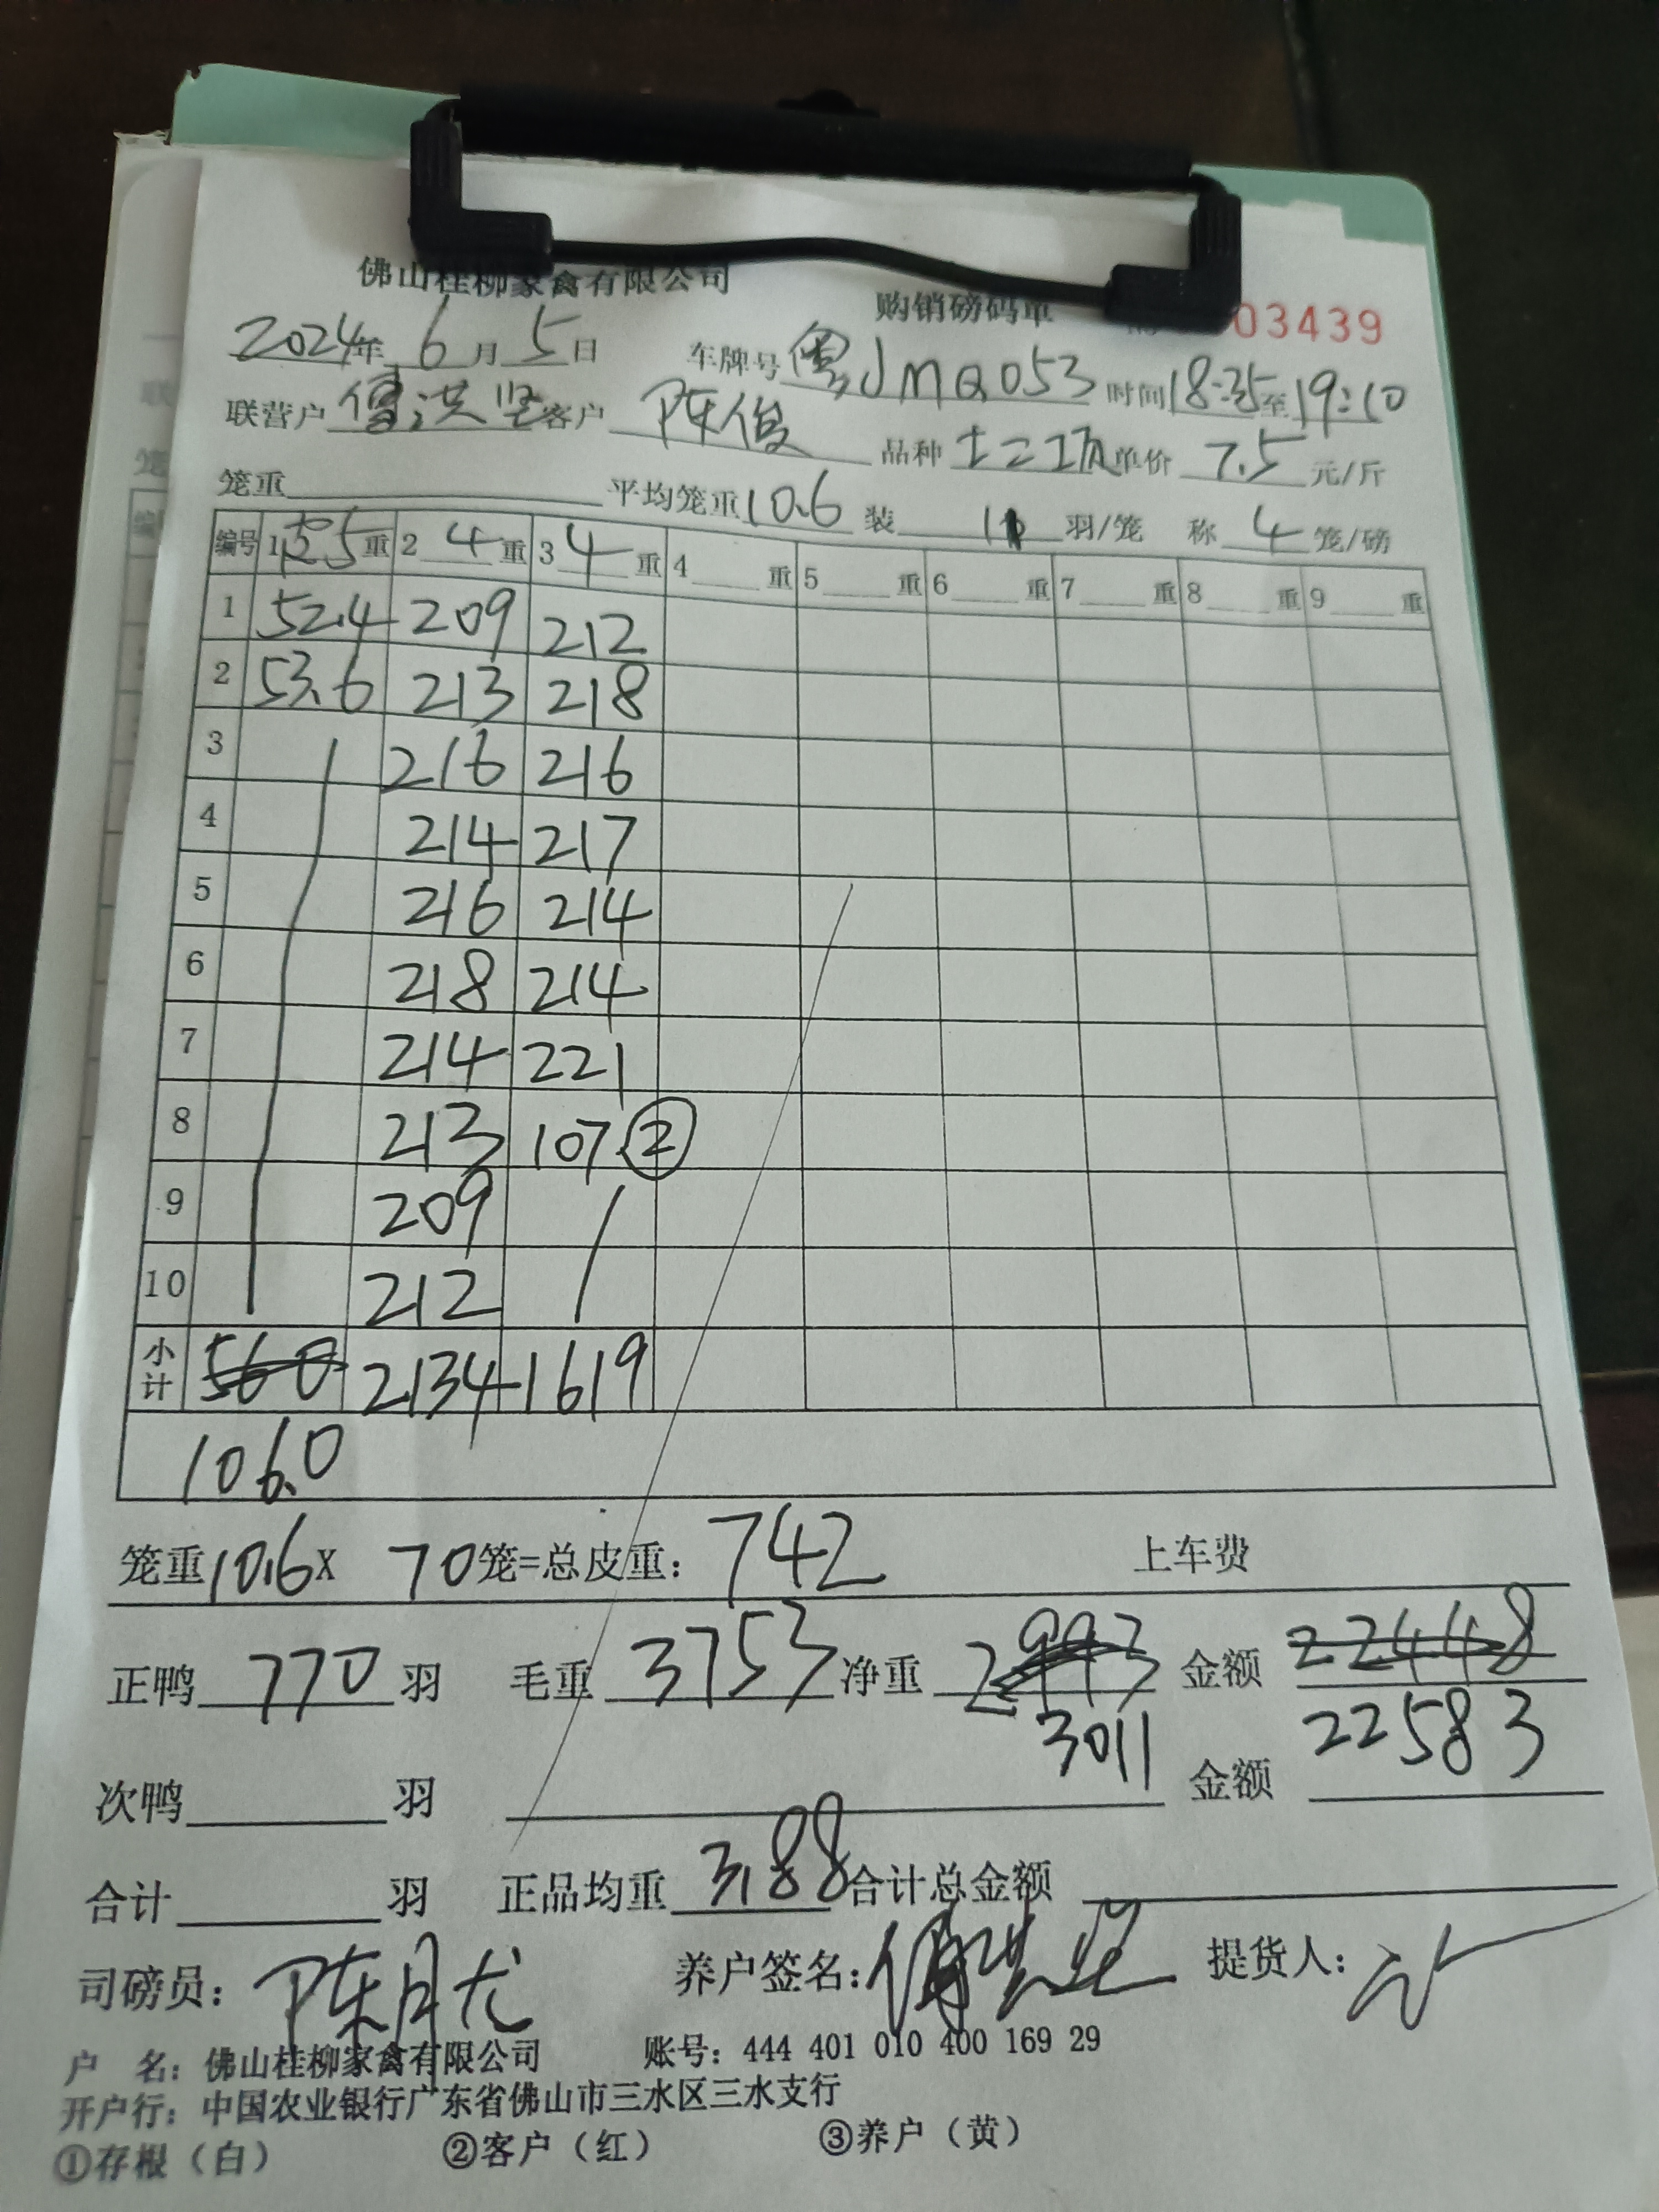 佛山桂柳家禽有限公司 购销磅码单 03439
2024年 6 月 5 日 车牌号 粤JMQ053 时间 18:35 至 19:10
联营户 洪坚 客户 陈俊 品种 单价 7.5 元/斤
笼重 平均笼重 10.6 装 11 羽/笼 称 4 笼/磅
编号 1 5 重 2 4 重 3 4 重 4 重 5 重 6 重 7 重 8 重 9 重
1 52.4 209 212
2 53.6 213 218
3 216 216
4 214 217
5 216 214
6 218 214
7 214 221
8 213 107 ②
9 209
10 212
小计 560 2134 1619
106.0
笼重 10.6 X 70 笼=总皮重: 742 上车费
正鸭 770 羽 毛重 3753 净重 2993 金额 22448
3011 22583
次鸭 羽 金额
合计 羽 正品均重 3.88 合计总金额
司磅员: 陈月龙 养户签名: 提货人:
户 名: 佛山桂柳家禽有限公司 账号: 444 401 010 400 169 29
开户行: 中国农业银行广东省佛山市三水区三水支行
①存根（白） ②客户（红） ③养户（黄）